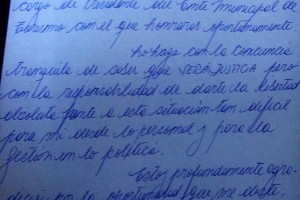 cargo de Presidente del Ente Municipal de
Turismo con el que honraras oportunamente.
Lo hago con la conciencia
tranquila de saber que SERÁ JUSTICIA pero
con la responsabilidad de darte la libertad
absoluta frente a esta situación tan difícil
para mi desde lo personal y para la
gestión en lo política.
Estoy profundamente agra-
decida por la oportunidad que me diste,